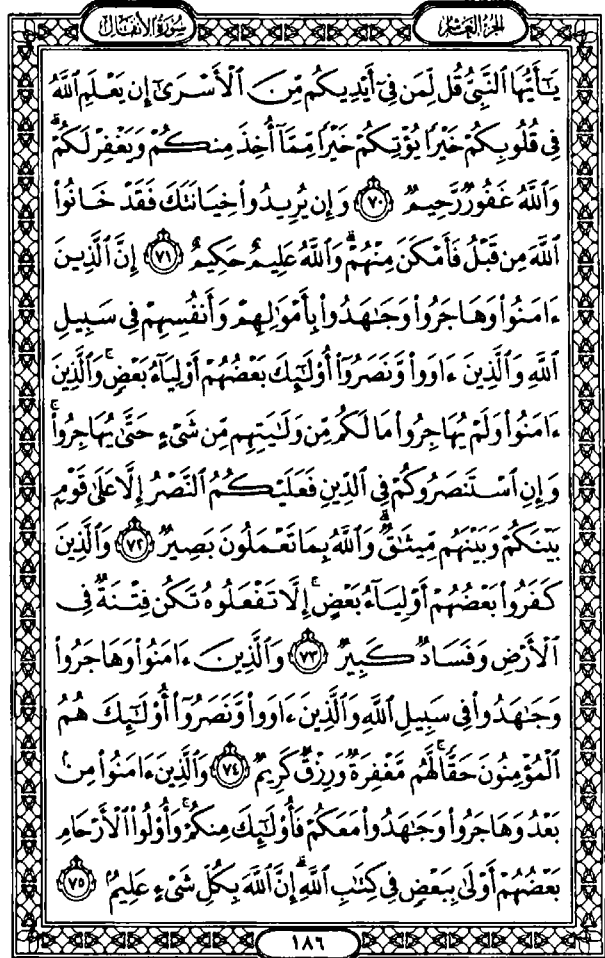 سُورَةُ الأَنفَال
الجُزْءُ العَاشِر
يَـٰٓأَيُّهَا ٱلنَّبِىُّ قُل لِّمَن فِىٓ أَيْدِيكُم مِّنَ ٱلْأَسْرَىٰٓ إِن يَعْلَمِ ٱللَّهُ
فِى قُلُوبِكُمْ خَيْرًا يُؤْتِكُمْ خَيْرًا مِّمَّآ أُخِذَ مِنكُمْ وَيَغْفِرْ لَكُمْ ۗ
وَٱللَّهُ غَفُورٌ رَّحِيمٌ ﴿٧٠﴾ وَإِن يُرِيدُوا۟ خِيَانَتَكَ فَقَدْ خَانُوا۟
ٱللَّهَ مِن قَبْلُ فَأَمْكَنَ مِنْهُمْ ۗ وَٱللَّهُ عَلِيمٌ حَكِيمٌ ﴿٧١﴾ إِنَّ ٱلَّذِينَ
ءَامَنُوا۟ وَهَاجَرُوا۟ وَجَـٰهَدُوا۟ بِأَمْوَٰلِهِمْ وَأَنفُسِهِمْ فِى سَبِيلِ
ٱللَّهِ وَٱلَّذِينَ ءَاوَوا۟ وَّنَصَرُوٓا۟ أُو۟لَـٰٓئِكَ بَعْضُهُمْ أَوْلِيَآءُ بَعْضٍ ۚ وَٱلَّذِينَ
ءَامَنُوا۟ وَلَمْ يُهَاجِرُوا۟ مَا لَكُم مِّن وَلَـٰيَتِهِم مِّن شَىْءٍ حَتَّىٰ يُهَاجِرُوا۟ ۚ
وَإِنِ ٱسْتَنصَرُوكُمْ فِى ٱلدِّينِ فَعَلَيْكُمُ ٱلنَّصْرُ إِلَّا عَلَىٰ قَوْمٍۭ
بَيْنَكُمْ وَبَيْنَهُم مِّيثَـٰقٌ ۗ وَٱللَّهُ بِمَا تَعْمَلُونَ بَصِيرٌ ﴿٧٢﴾ وَٱلَّذِينَ
كَفَرُوا۟ بَعْضُهُمْ أَوْلِيَآءُ بَعْضٍ ۚ إِلَّا تَفْعَلُوهُ تَكُن فِتْنَةٌ فِى
ٱلْأَرْضِ وَفَسَادٌ كَبِيرٌ ﴿٧٣﴾ وَٱلَّذِينَ ءَامَنُوا۟ وَهَاجَرُوا۟
وَجَـٰهَدُوا۟ فِى سَبِيلِ ٱللَّهِ وَٱلَّذِينَ ءَاوَوا۟ وَّنَصَرُوٓا۟ أُو۟لَـٰٓئِكَ هُمُ
ٱلْمُؤْمِنُونَ حَقًّا ۚ لَّهُم مَّغْفِرَةٌ وَرِزْقٌ كَرِيمٌ ﴿٧٤﴾ وَٱلَّذِينَ ءَامَنُوا۟ مِنۢ
بَعْدُ وَهَاجَرُوا۟ وَجَـٰهَدُوا۟ مَعَكُمْ فَأُو۟لَـٰٓئِكَ مِنكُمْ ۚ وَأُو۟لُوا۟ ٱلْأَرْحَامِ
بَعْضُهُمْ أَوْلَىٰ بِبَعْضٍ فِى كِتَـٰبِ ٱللَّهِ ۗ إِنَّ ٱللَّهَ بِكُلِّ شَىْءٍ عَلِيمٌۢ ﴿٧٥﴾
١٨٦